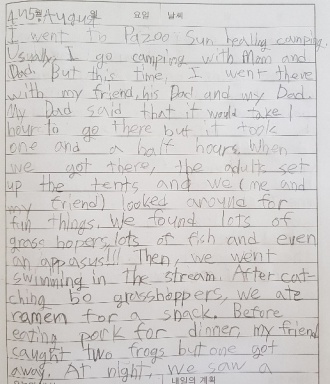 4월 5일 August 요일 날씨
I went to Pazoo Sun healing camping.
Usually, I go camping with Mom and
Dad. But this time, I went there
with my friend, his Dad and my Dad.
My Dad said that it would take 1
hour to go there but it took
one and a half hours. When
we got there, the adults set
up the tents and we (me and
my friend) looked around for
fun things. We found lots of
grass hopers, lots of fish and even
an appasus!!! Then, we went
swimming in the stream. After cat-
ching 60 grasshoppers, we ate
ramen for a snack. Before
eating pork for dinner, my friend
caught two frogs but one got
away. At night, we saw a
내일의 계획